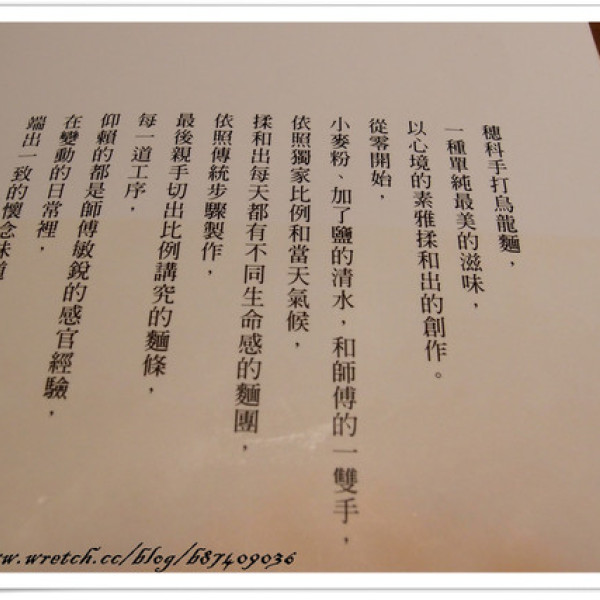 穗科手打烏龍麵，
一種單純最美的滋味，
以心境的素雅揉和出的創作。
從零開始，
小麥粉、加了鹽的清水，和師傅的一雙手，
依照獨家比例和當天氣候，
揉和出每天都有不同生命感的麵團，
依照傳統步驟製作，
最後親手切出比例講究的麵條，
每一道工序，
仰賴的都是師傅敏銳的感官經驗，
在變動的日常裡，
端出一致的懷念味道
ww.wretch.cc/blog/b87409036